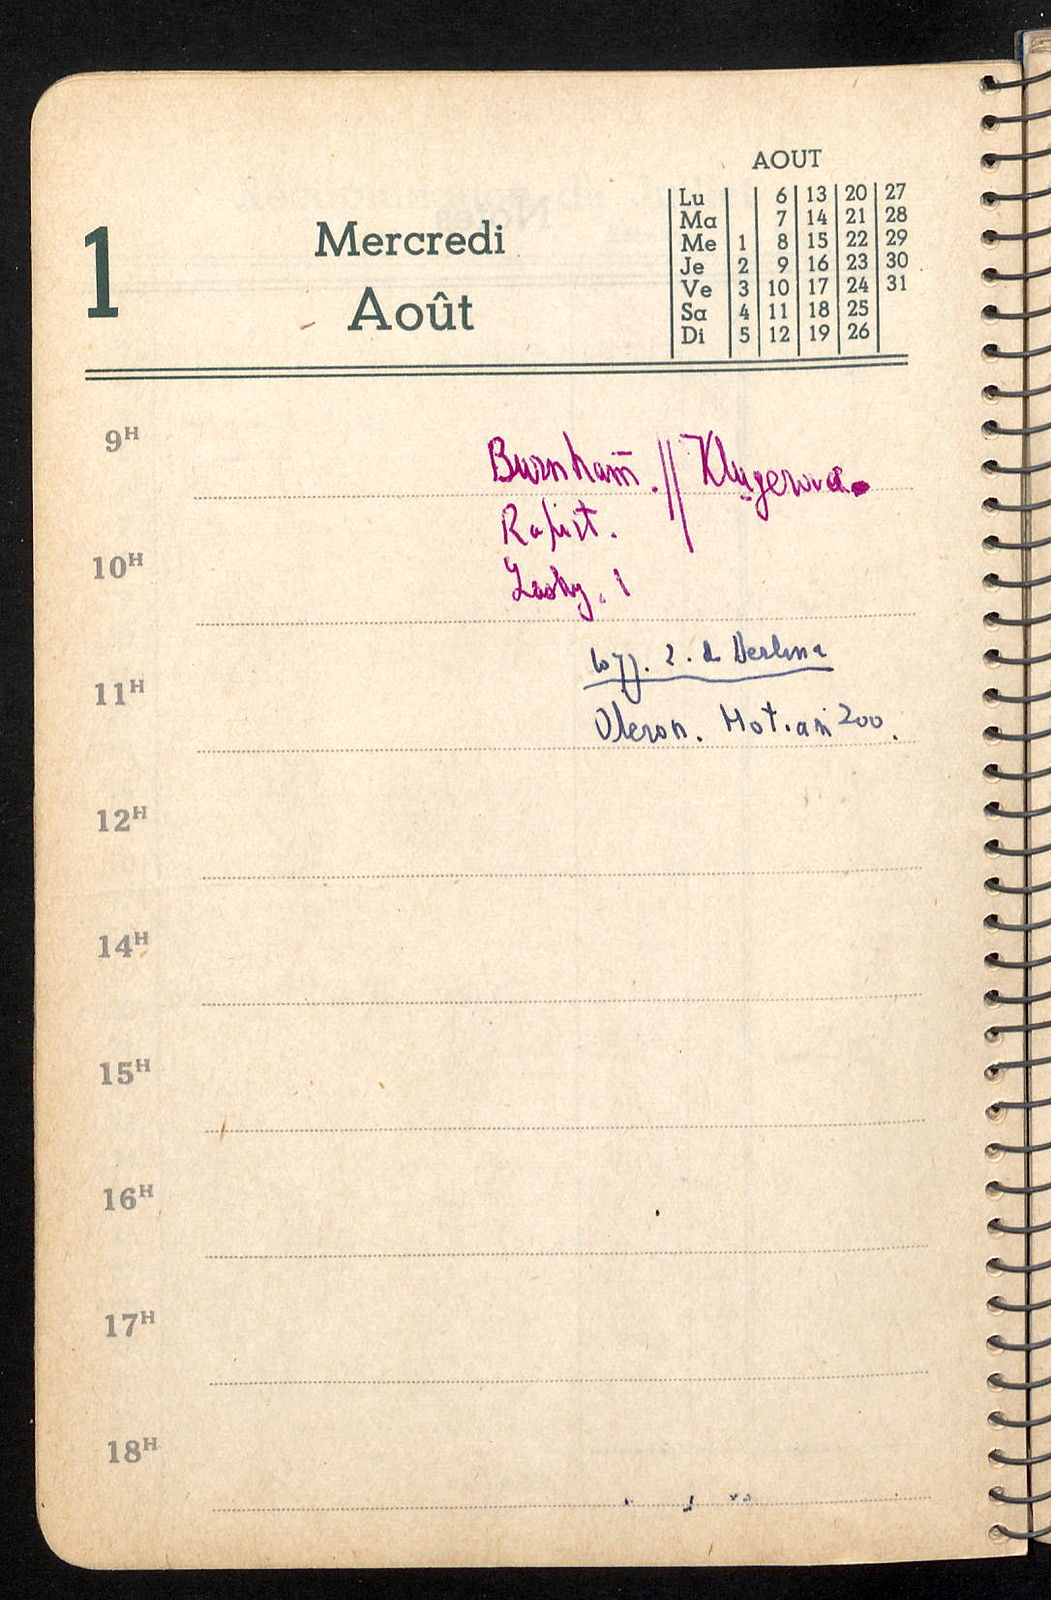 AOUT
Lu 6 13 20 27
Ma 7 14 21 28
Me 1 8 15 22 29
Je 2 9 16 23 30
Ve 3 10 17 24 31
Sa 4 11 18 25
Di 5 12 19 26
1 Mercredi
Août
9H
Burnham. // Klugerowa.
10H
Lasky. 1
2. d Berlina
11H
Oleron. 200.
12H
14H
15H
16H
17H
18H